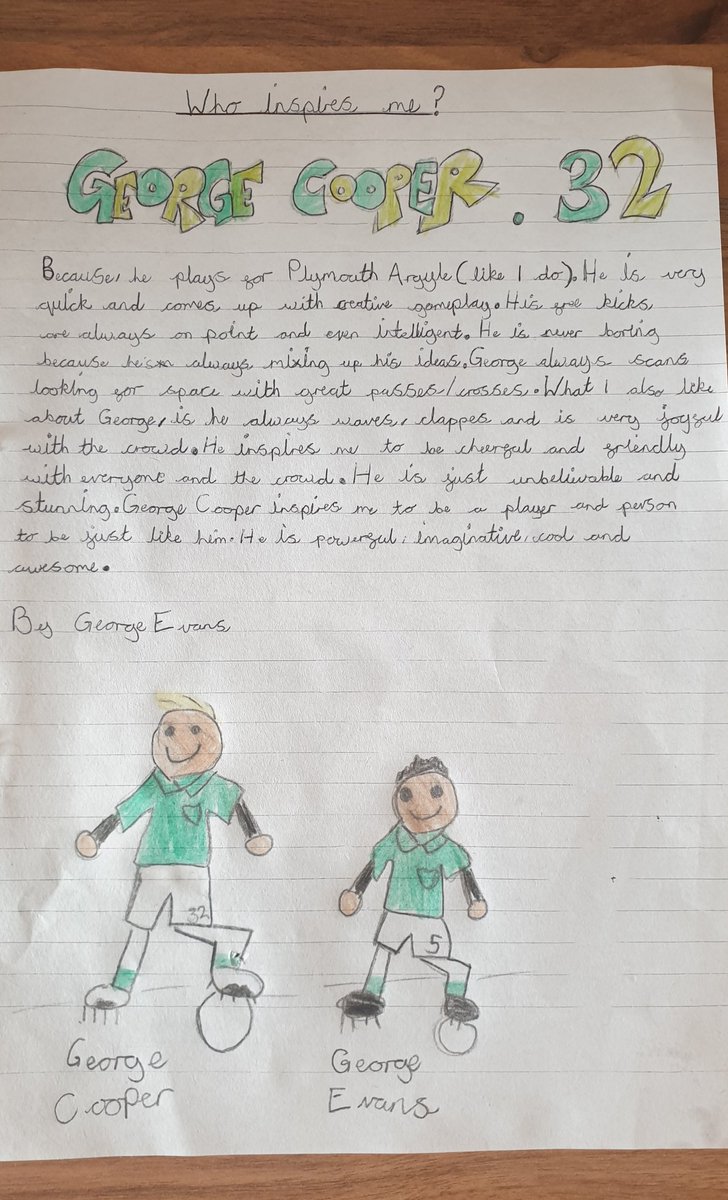 Who inspires me?
GEORGE COOPER. 32
Because, he plays for Plymouth Argyle (like I do). He is very
quick and comes up with creative gameplay. His free kicks
are always on point and even intelligent. He is never boring
because he's always mixing up his ideas. George always scans
looking for space with great passes/crosses. What I also like
about George, is he always waves, clappes and is very joyful
with the crowd. He inspires me to be cheerful and friendly
with everyone and the crowd. He is just unbelivable and
stunning. George Cooper inspires me to be a player and person
to be just like him. He is powerful, imaginative, cool and
awesome.
By George Evans
32
5
George
Cooper
George
Evans